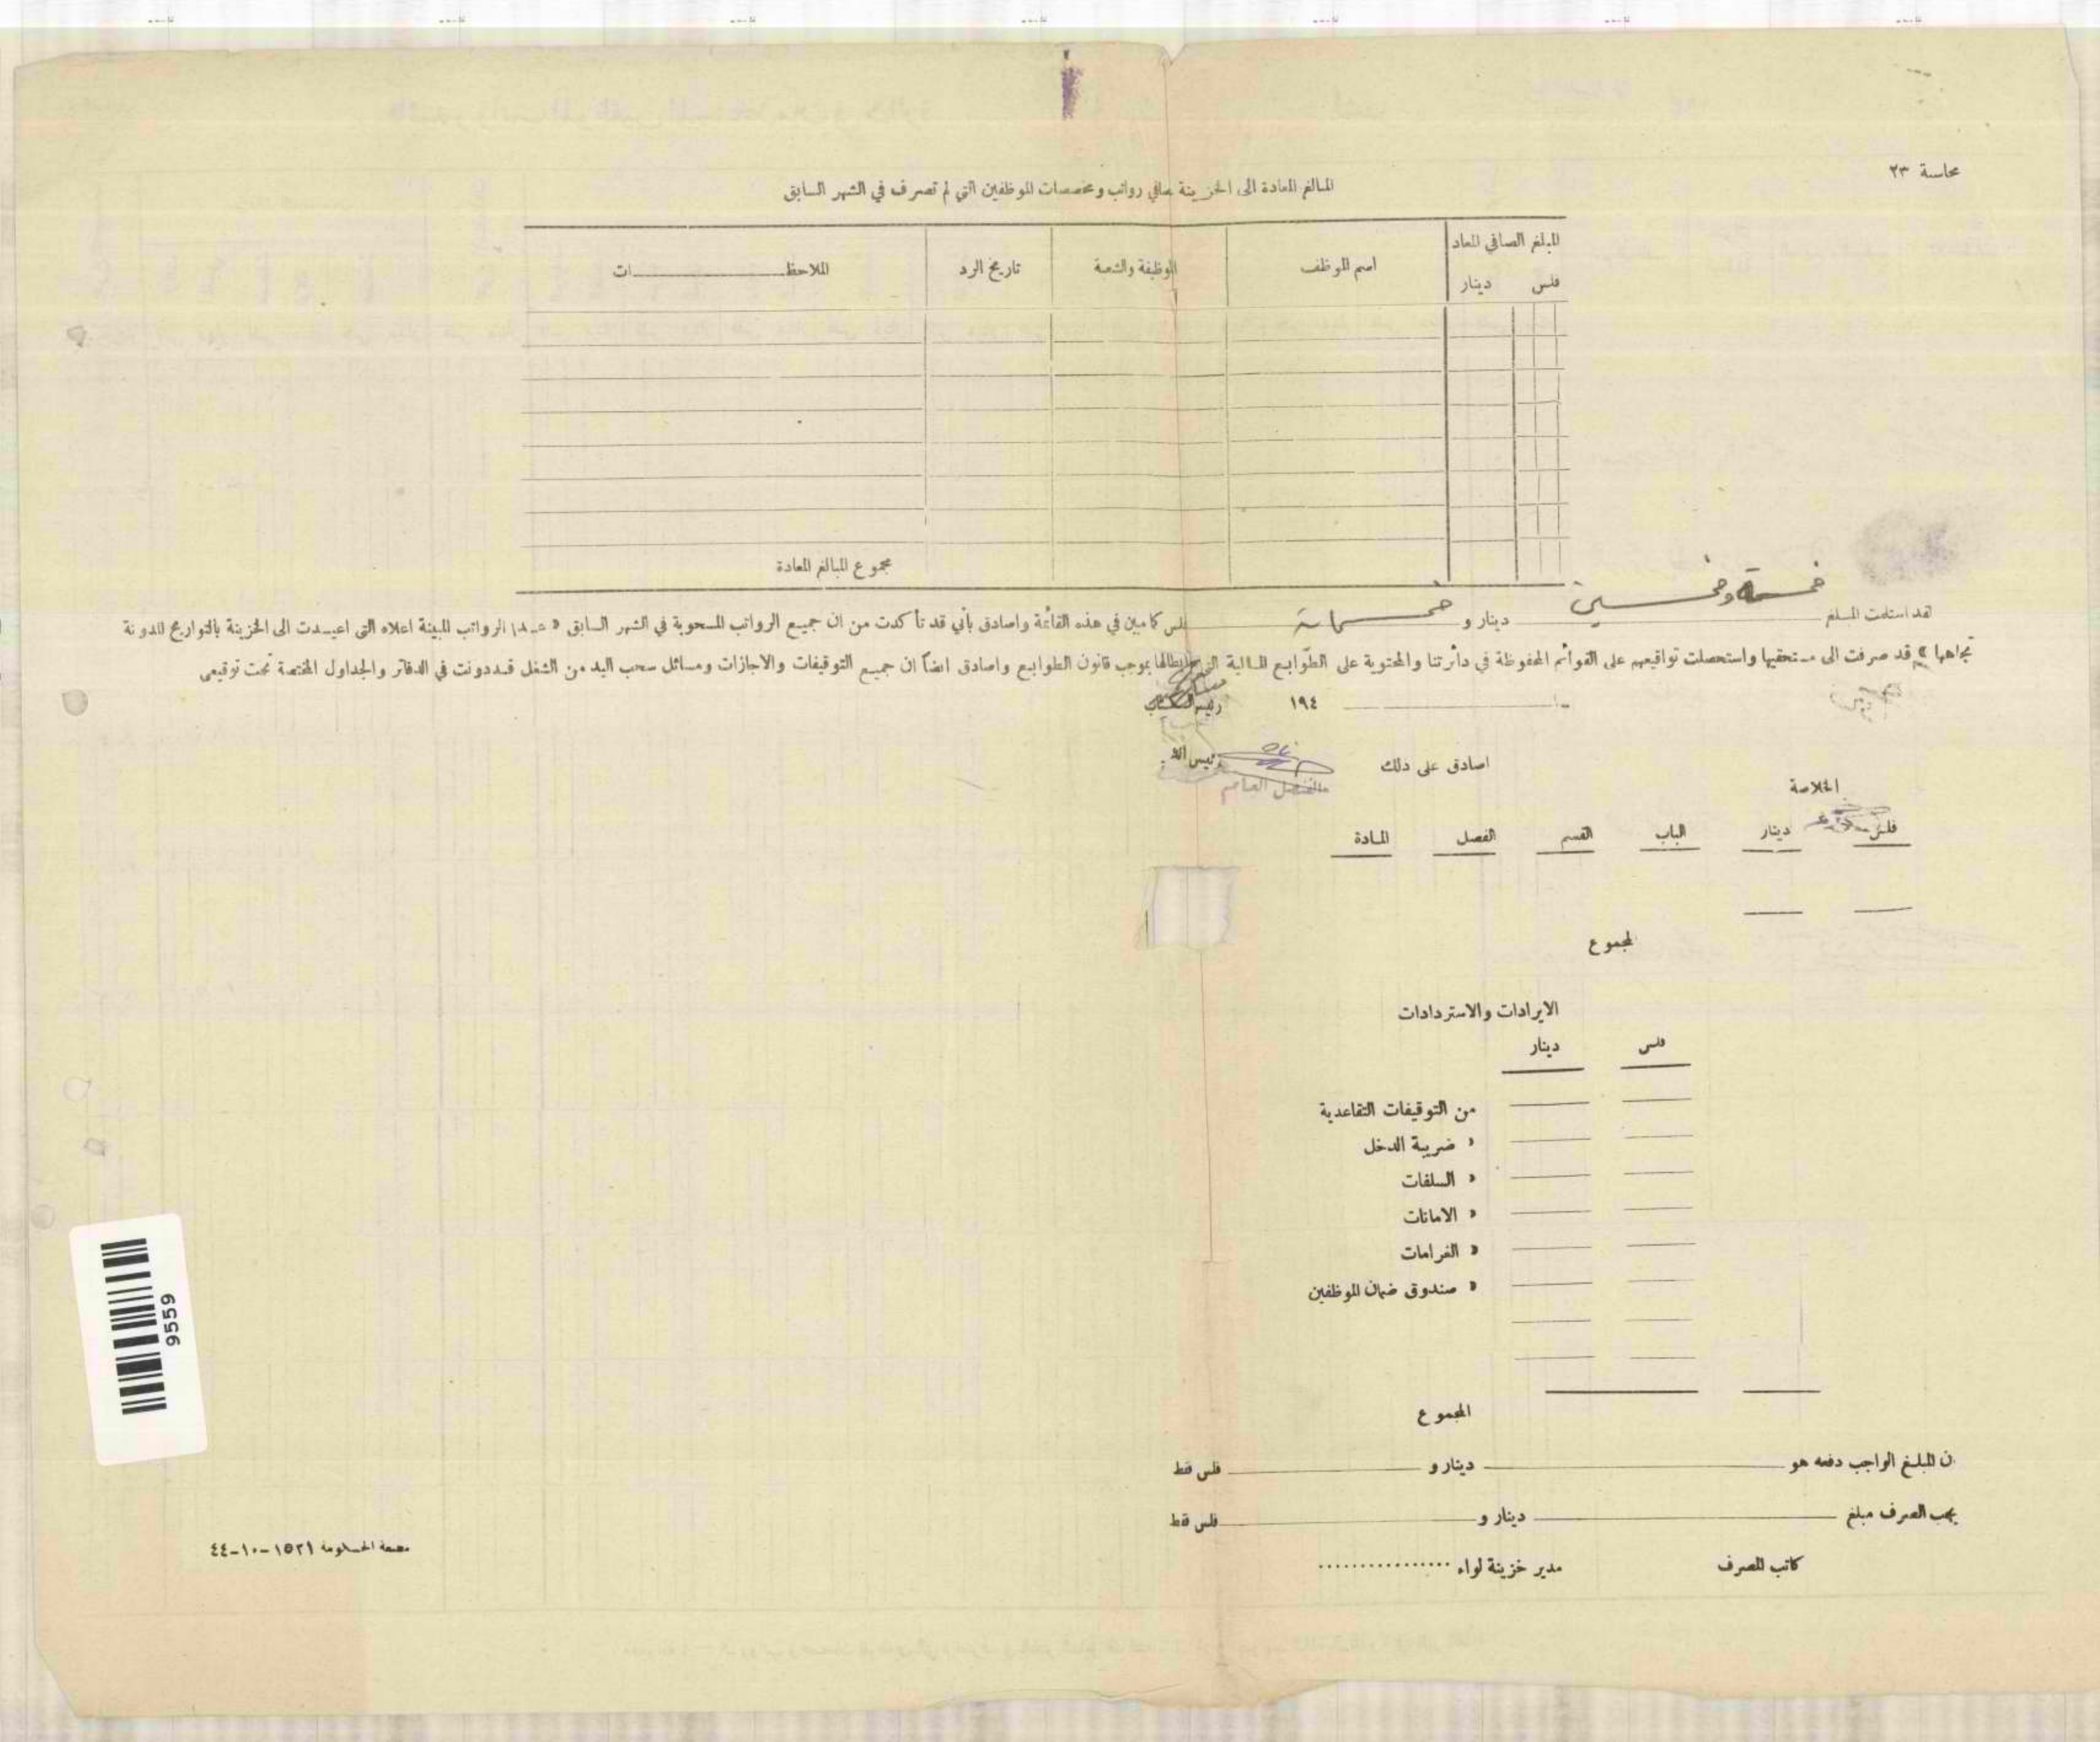 محاسبة ٢٣
المبالغ المعادة الى الخزينة صافي رواتب ومخصصات الموظفين التي لم تصرف في الشهر السابق
المبلغ الصافي المعاد
فلس دينار
اسم الموظف
الوظيفة والشعبة
تاريخ الرد
الملاحظـــات
مجموع المبالغ المعادة
لقد استلمت المبلغ خمسة وخمسين دينار و خمسمائة فلس كما مبين في هذه القائمة واصادق بأني قد تأكدت من ان جميع الرواتب المسحوبة في الشهر السابق « عدا الرواتب المبينة اعلاه التى اعيدت الى الخزينة بالتواريخ المدونة
تجاهها » قد صرفت الى مستحقيها واستحصلت تواقيعهم على القوائم المحفوظة في دائرتنا والمحتوية على الطوابع المالية ابطالها بموجب قانون الطوابع واصادق ايضاً ان جميع التوقيفات والاجازات ومسائل سحب اليد من الشغل قد دونت في الدفاتر والجداول المختصة تحت توقيعى
١٩٤
اصادق على ذلك
الخلاصة
فلس دينار الباب القسم الفصل المادة
المجموع
الايرادات والاستردادات
فلس دينار
من التوقيفات التقاعدية
« ضريبة الدخل
« السلفات
« الامانات
« الغرامات
« صندوق ضمان الموظفين
المجموع
ن المبلغ الواجب دفعه هو دينار و فلس فقط
يجب الصرف مبلغ دينار و فلس فقط
كاتب المصرف
مدير خزينة لواء ................
مطبعة الحكومة ١٥٢١-١٠-٤٤
9559